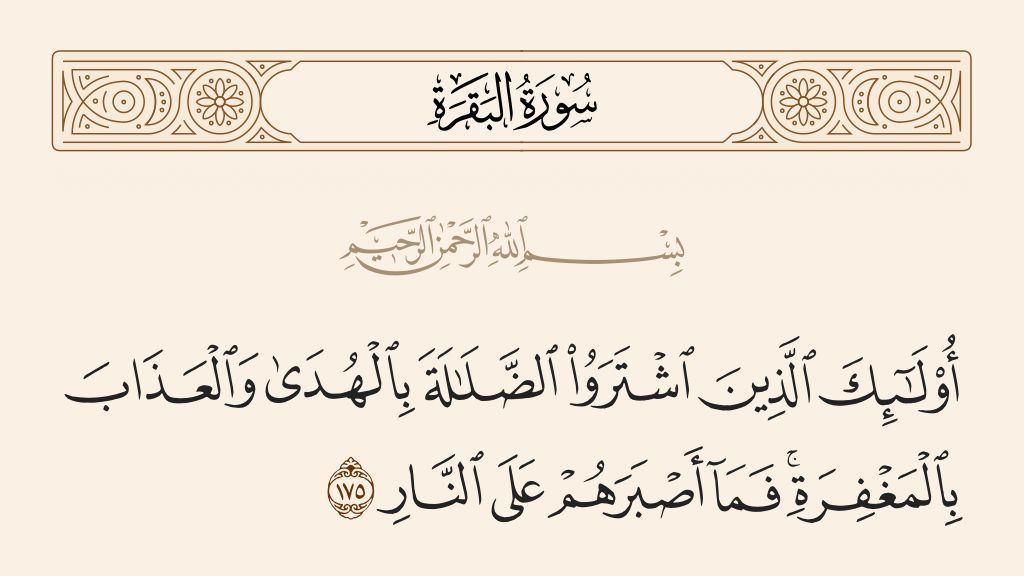 سُورَةُ البَقَرَةِ
بِسْمِ ٱللَّهِ ٱلرَّحْمَٰنِ ٱلرَّحِيمِ
أُو۟لَـٰٓئِكَ ٱلَّذِينَ ٱشْتَرَوُا۟ ٱلضَّلَـٰلَةَ بِٱلْهُدَىٰ وَٱلْعَذَابَ
بِٱلْمَغْفِرَةِ ۚ فَمَآ أَصْبَرَهُمْ عَلَى ٱلنَّارِ ١٧٥